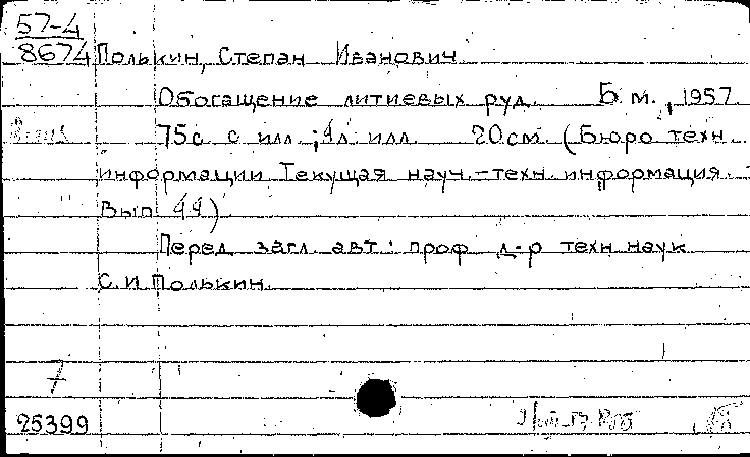 57-4
8674 Полькин, Степан Иванович
Обогащение литиевых руд. Б.м., 1957.
75с. с илл.; 1л. илл. 20см. (Бюро техн.
информации. Текущая науч.-техн. информация.
Вып. 11)
Перед загл. авт.: проф. д-р техн. наук
С.И. Полькин.
7
25399